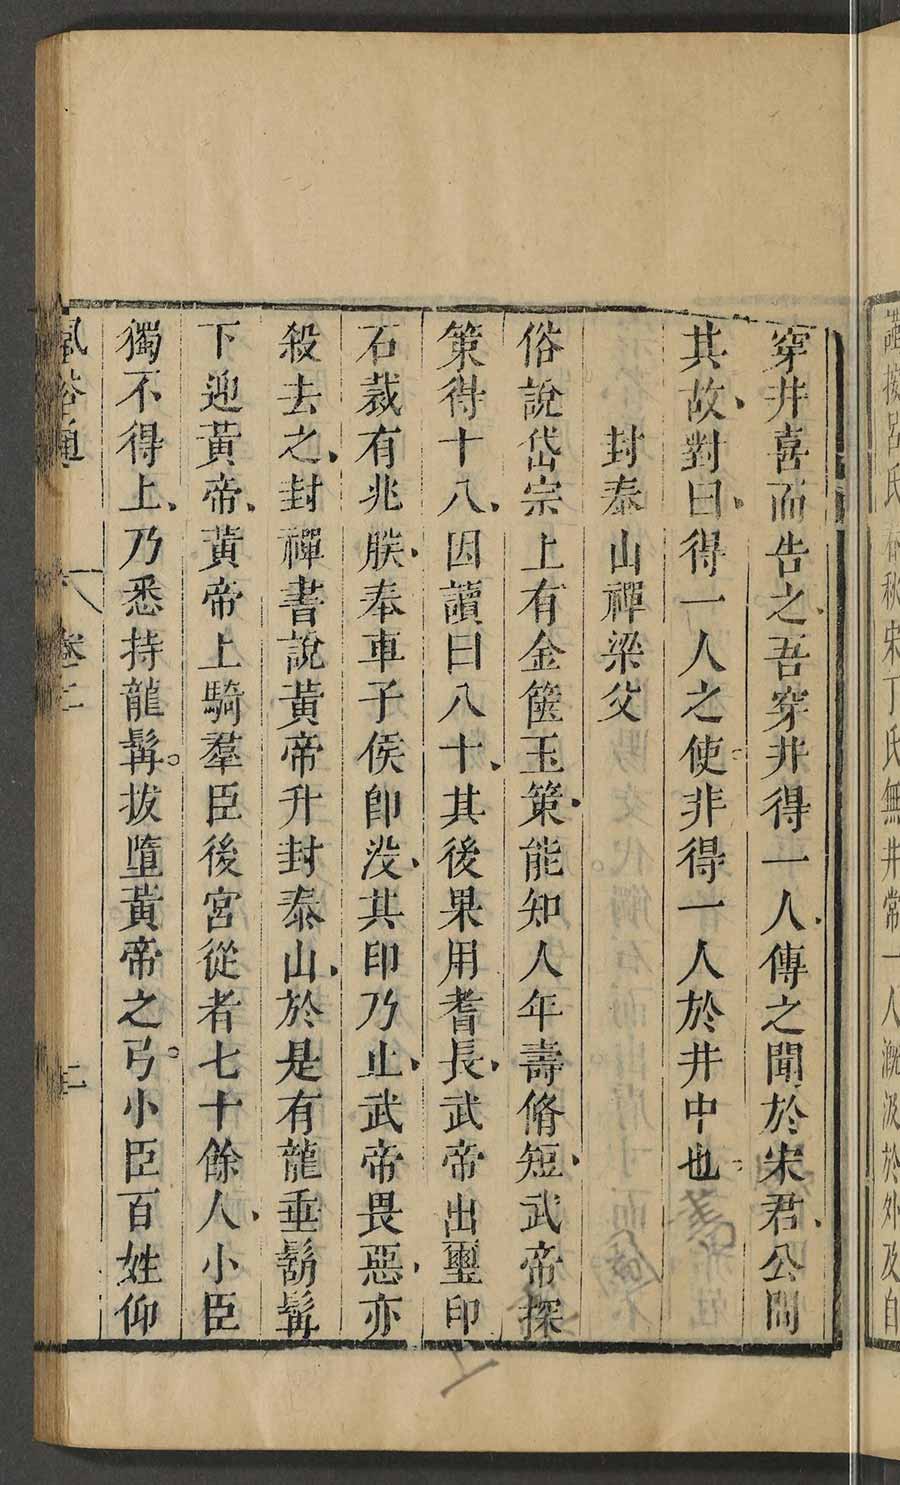 謹按呂氏春秋宋丁氏無井常一人溉汲於外及自
穿井喜而告之吾穿井得一人傳之聞於宋君公問
其故對曰得一人之使非得一人於井中也
封泰山禪梁父
俗說岱宗上有金篋玉策能知人年壽脩短武帝探
策得十八因讀曰八十其後果用耆長武帝出璽印
石裁有兆朕奉車子侯卽沒其印乃止武帝畏惡亦
殺去之封禪書說黃帝升封泰山於是有龍垂鬍髯
下迎黃帝黃帝上騎羣臣後宮從者七十餘人小臣
獨不得上乃悉持龍髯拔墮黃帝之弓小臣百姓仰
風俗通 卷二 三